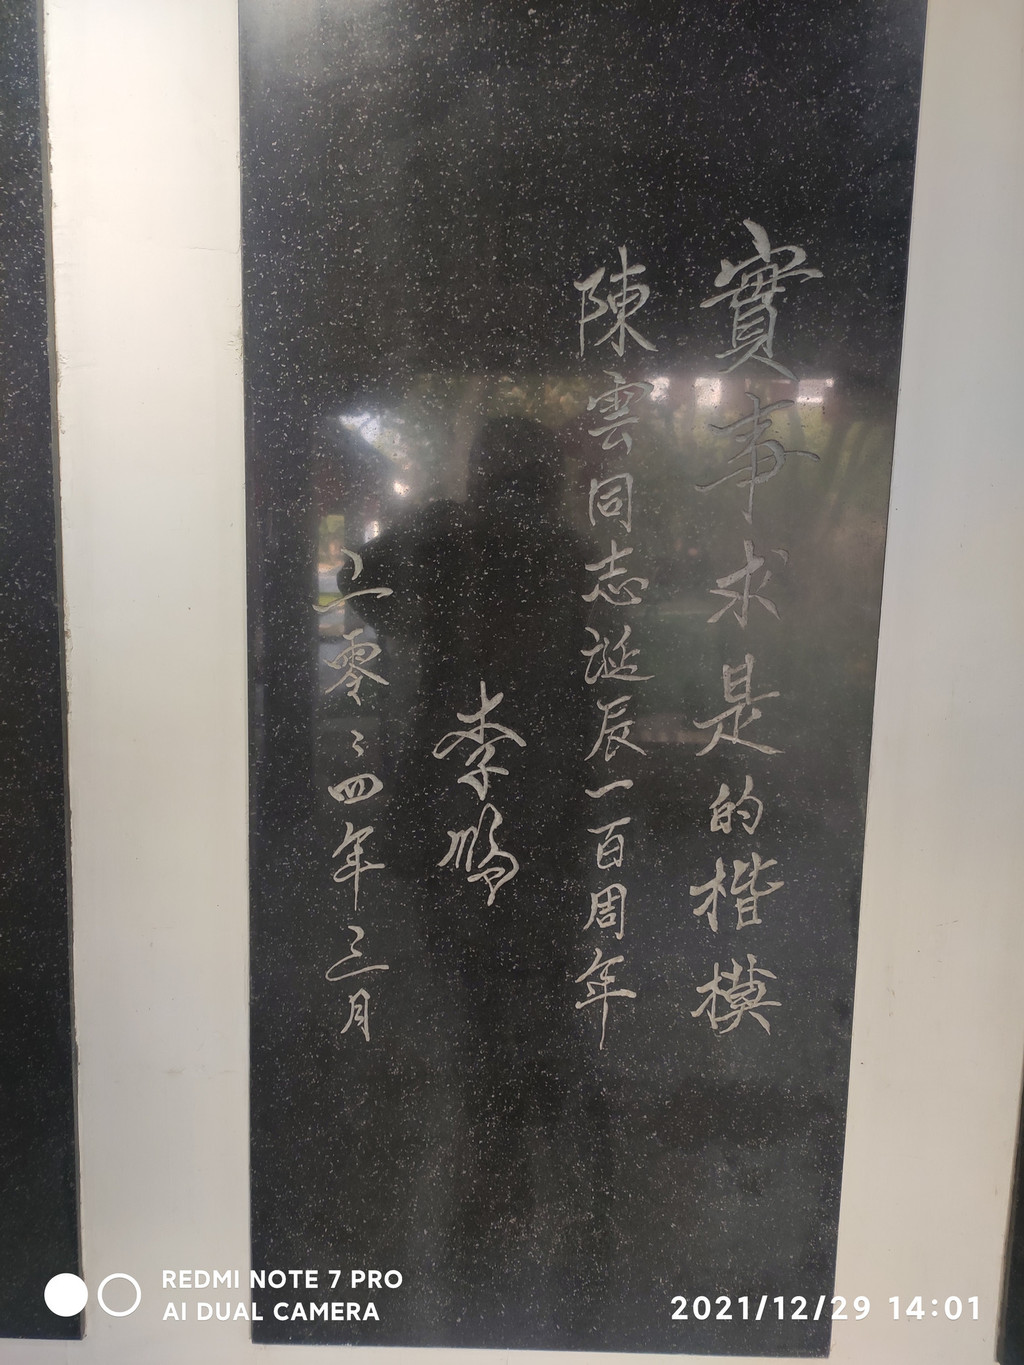 實事求是的楷模
陳雲同志誕辰一百周年
李鵬
二零〻四年三月
REDMI NOTE 7 PRO
AI DUAL CAMERA
2021/12/29 14:01